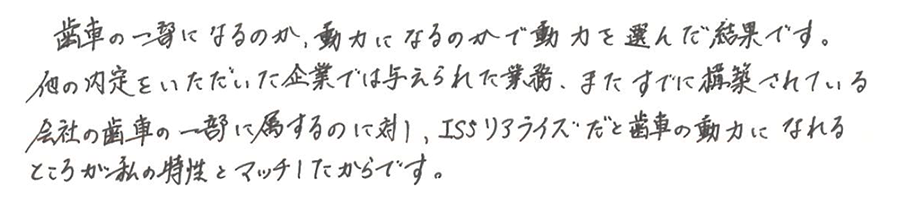 歯車の一部になるのか、動力になるのかで動力を選んだ結果です。
他の内定をいただいた企業では与えられた業務、またすでに構築されている
会社の歯車の一部に属するのに対し、ISSリアライズだと歯車の動力になれる
ところが私の特性とマッチしたからです。